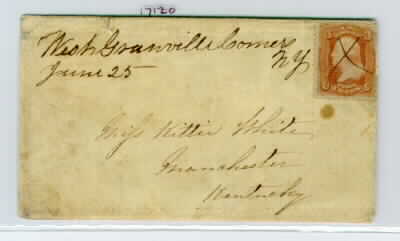 17120
West Granville Corners
NY
June 25
Miss Kittie White
Manchester
Kentucky